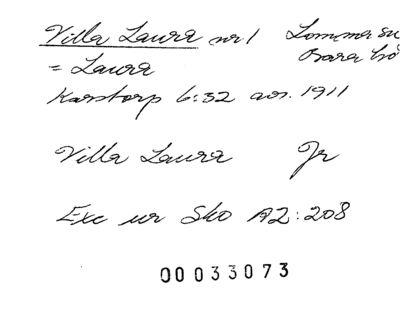 Villa Laura nr 1 Lomma sn
= Laura Bara hd
Karstorp 6:32 avs. 1911
Villa Laura Jr
Exc ur Sko A2:208
00033073